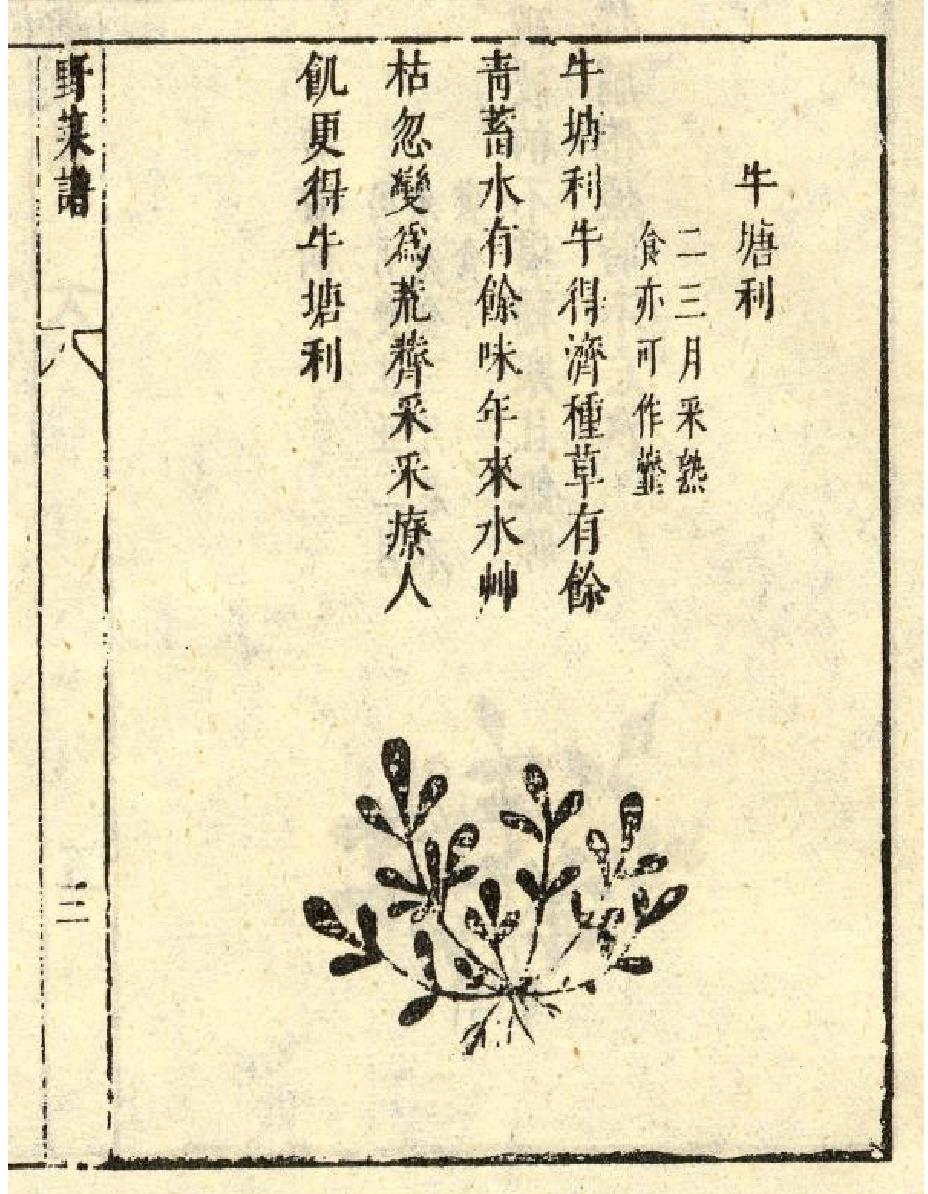 牛塘利
二三月采熟
食亦可作虀
牛塘利牛得濟種草有餘
青蓄水有餘味年來水艸
枯忽變爲荒薺采采療人
飢更得牛塘利
野菜譜
三